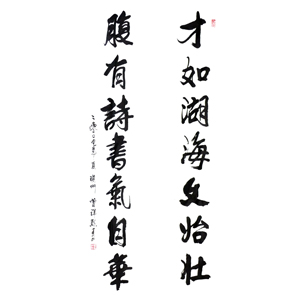 才如湖海文始壯
腹有詩書氣自華